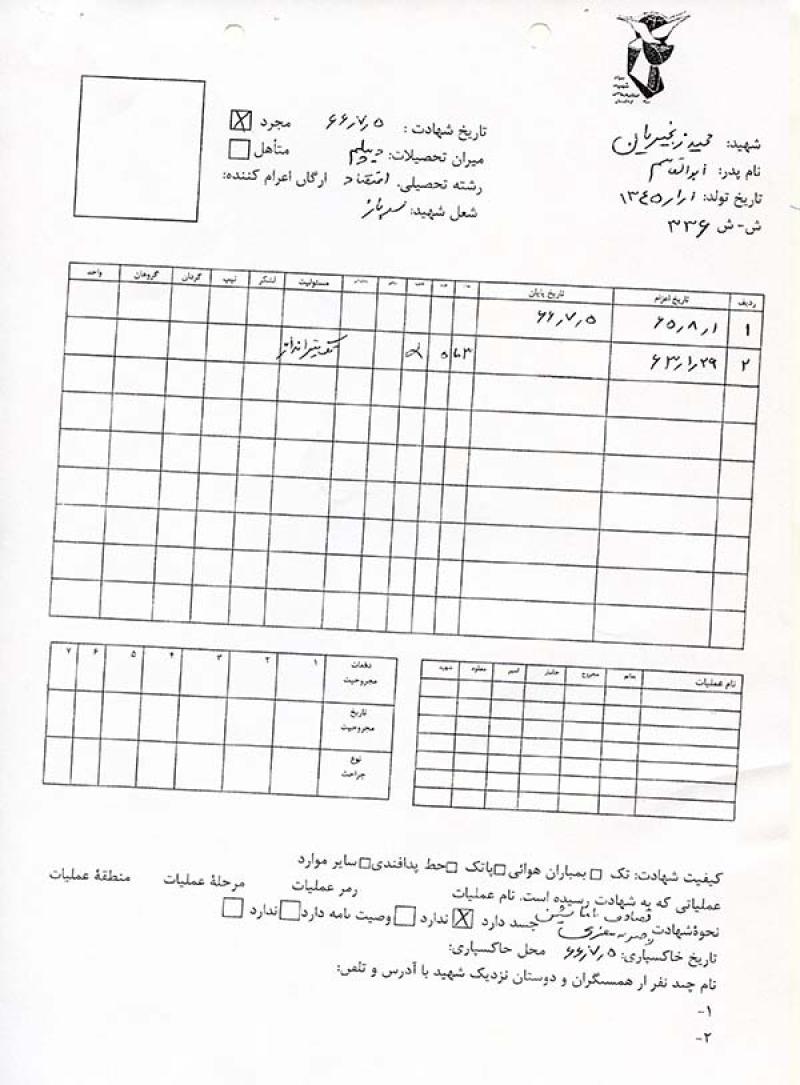 شهید: حمید زنجیریان
نام پدر: ابوالقاسم
تاریخ تولد: ۱۳۴۵/۱/۱
ش-ش ۳۳۶
تاریخ شهادت: ۶۶/۷/۵ مجرد X
میزان تحصیلات: دیپلم متأهل
رشته تحصیلی. اقتصاد ارگان اعزام کننده:
شغل شهید: سرباز
ردیف تاریخ اعزام تاریخ پایان مسئولیت لشکر تیپ گردان گروهان واحد
۱ ۶۵/۸/۱ ۶۶/۷/۵
۲ ۶۳/۱/۲۹ تک تیرانداز
نام عملیات مجروح جانباز اسیر مفقود شهید
دفعات مجروحیت ۱ ۲ ۳ ۴ ۵ ۶ ۷
تاریخ مجروحیت
نوع جراحت
کیفیت شهادت: تک بمباران هوائی پاتک خط پدافندی سایر موارد
عملیاتی که به شهادت رسیده است. نام عملیات رمز عملیات مرحلهٔ عملیات منطقهٔ عملیات
نحوهٔ شهادت جسد دارد X ندارد وصیت نامه دارد ندارد
تاریخ خاکسپاری: ۶۶/۷/۵ محل خاکسپاری:
نام چند نفر از همسنگران و دوستان نزدیک شهید با آدرس و تلفن:
۱-
۲-